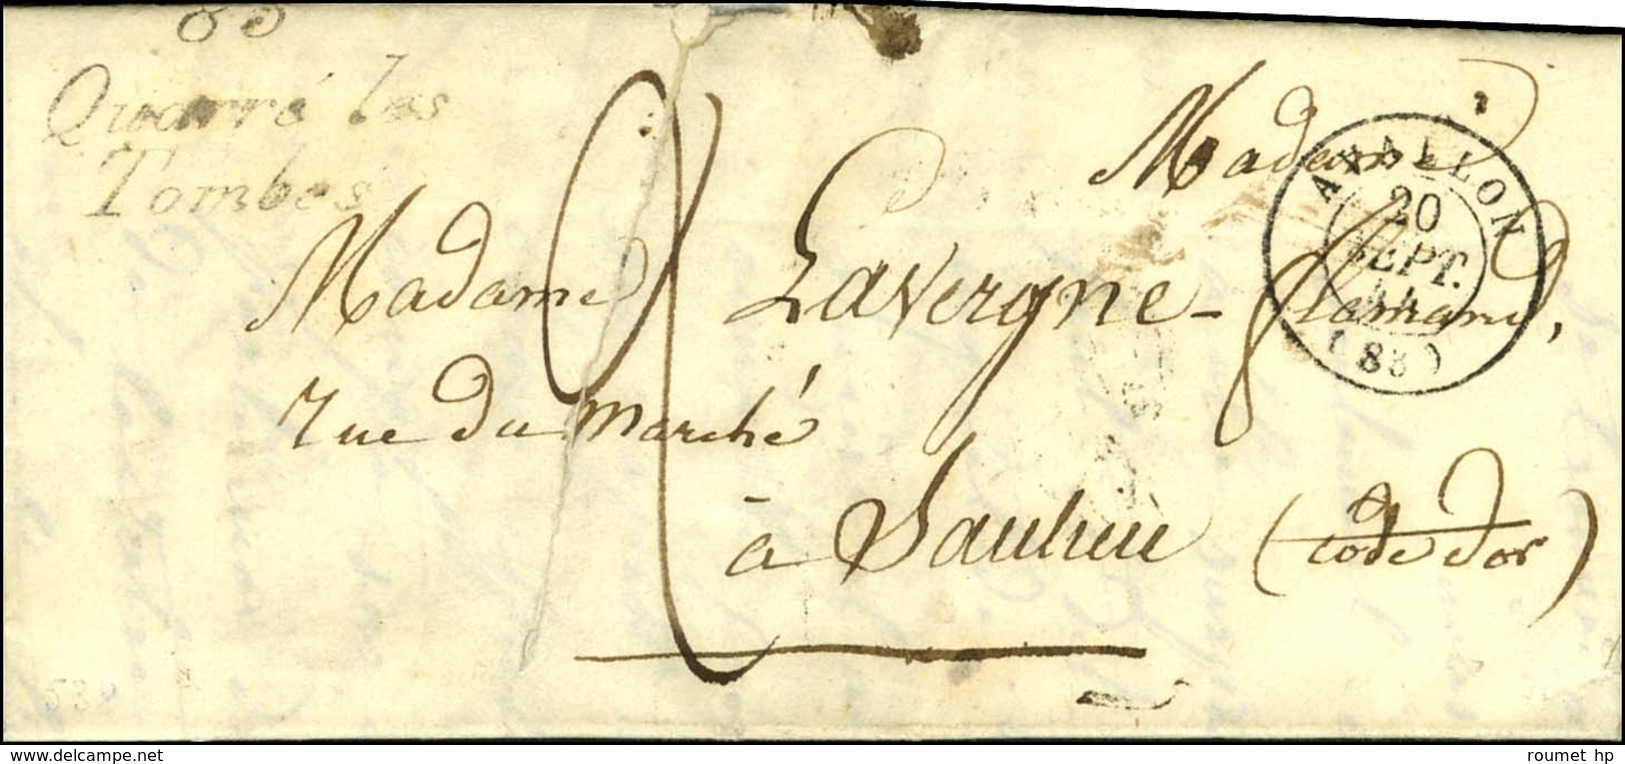 83
Quarré les
Tombes
Madame
AVALLON
20
SEPT.
44
(83)
Madame Lavergne - flamand,
rue du marché
à Saulieu (Cote d'or)
530
roumet hp
www.delcampe.net